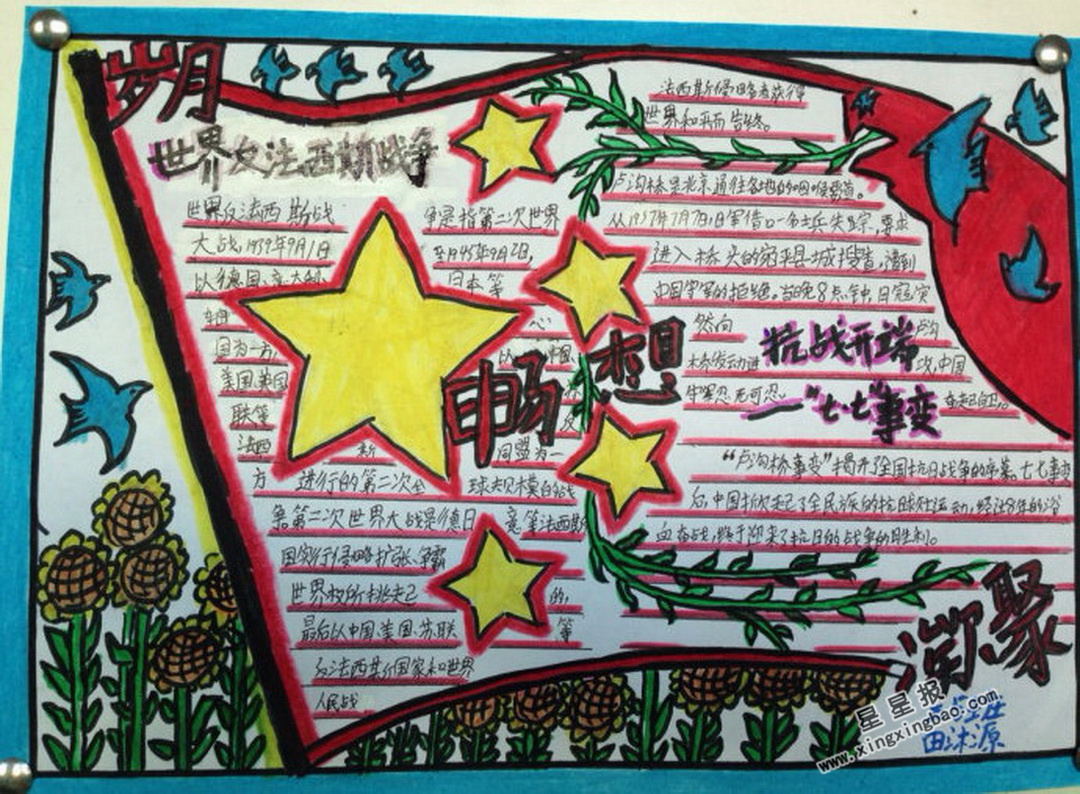 岁月
世界反法西斯战争
世界反法西斯战
争是指第二次世界
大战,1939年9月1日
至1945年9月2日,
以德国、意大利
日本等
轴心
国为一方,
以中国
美国、英国
苏
联等
反
法西斯
同盟为一
方 进行的第二次全球大规模的战
争。第二次世界大战是德日意等法西斯
国实行侵略扩张、争霸
世界权所挑起的,
最后以中国、美国、苏联等
反法西斯国家和世界
人民战
畅想
法西斯侵略者获得
世界和平而告终。
卢沟桥是北京通往各地的咽喉要道。
从1937年7月7日日军借口一名士兵失踪,要求
进入桥头的宛平县城搜查,遭到
中国守军的拒绝。当晚8点钟,日寇突
然向卢沟
桥发动进攻,中国
守军忍无可忍。奋起自卫。
抗战开端
—"七·七"事变
"卢沟桥事变"揭开了全国抗日战争的序幕。七七事变
后,中国掀起了全民族的抗战救亡运动,经过8年的浴
血奋战,终于迎来了抗日的战争的胜利。
汇聚
田沐源
星星报
www.xingxingbao.com